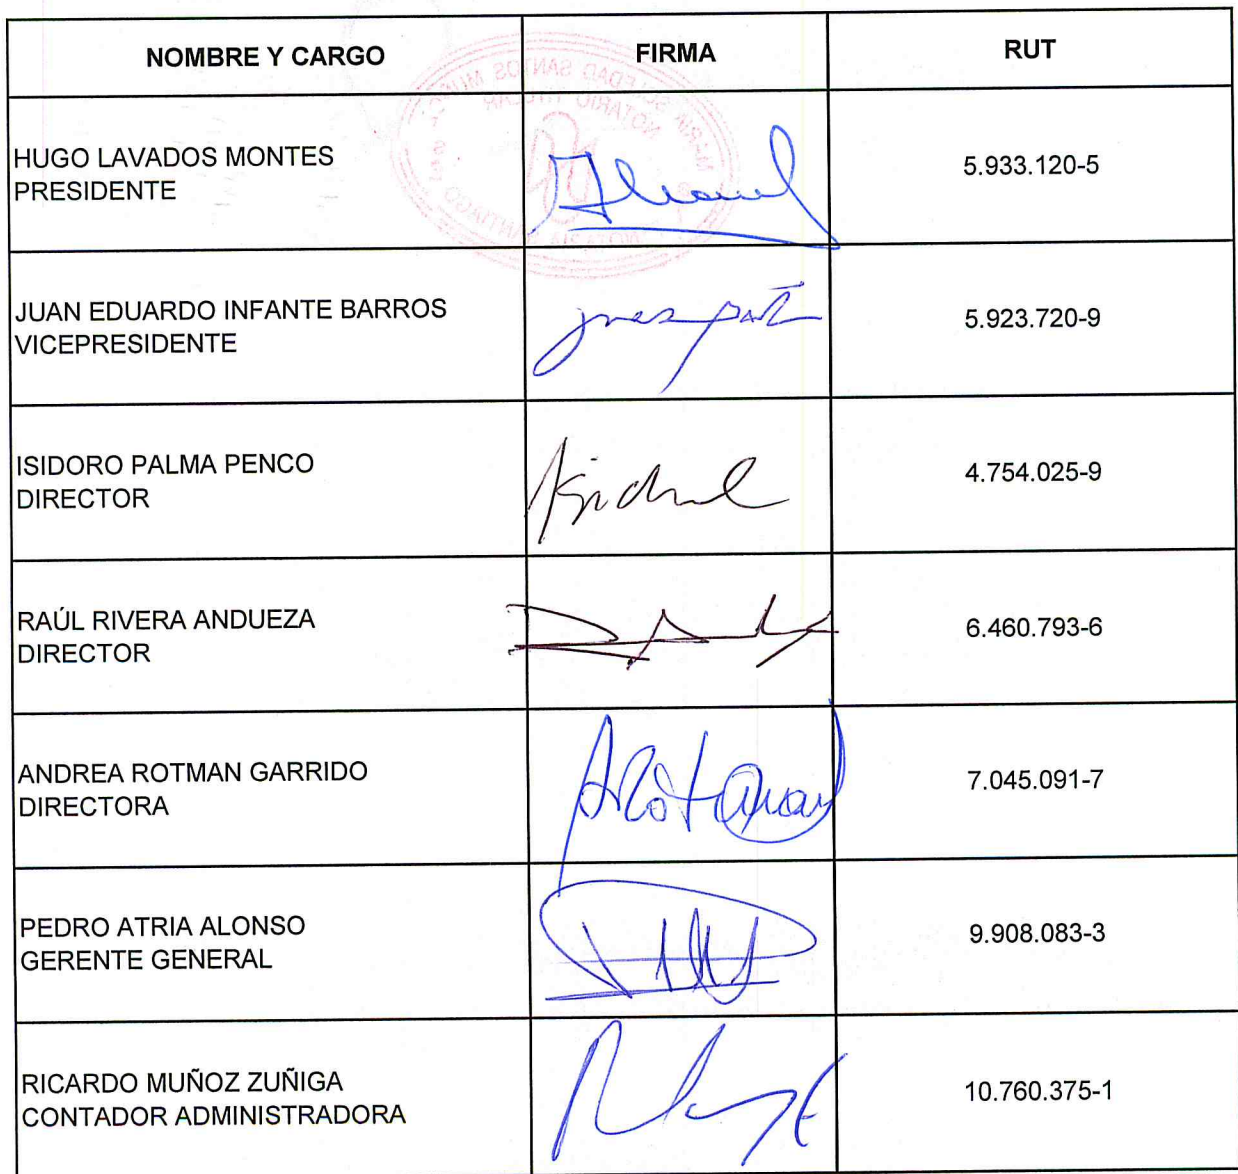 NOMBRE Y CARGO FIRMA RUT
HUGO LAVADOS MONTES
PRESIDENTE
5.933.120-5
JUAN EDUARDO INFANTE BARROS
VICEPRESIDENTE
5.923.720-9
ISIDORO PALMA PENCO
DIRECTOR
4.754.025-9
RAÚL RIVERA ANDUEZA
DIRECTOR
6.460.793-6
ANDREA ROTMAN GARRIDO
DIRECTORA
7.045.091-7
PEDRO ATRIA ALONSO
GERENTE GENERAL
9.908.083-3
RICARDO MUÑOZ ZUÑIGA
CONTADOR ADMINISTRADORA
10.760.375-1